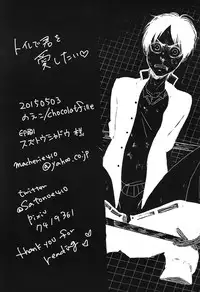 トイレで君を
愛したい♡
20150503
のてこ/chocolatefine
印刷
macherie410
@yahoo.co.jp
twitter
@Satonoe410
pixiv
7419361
thank you for
reading!